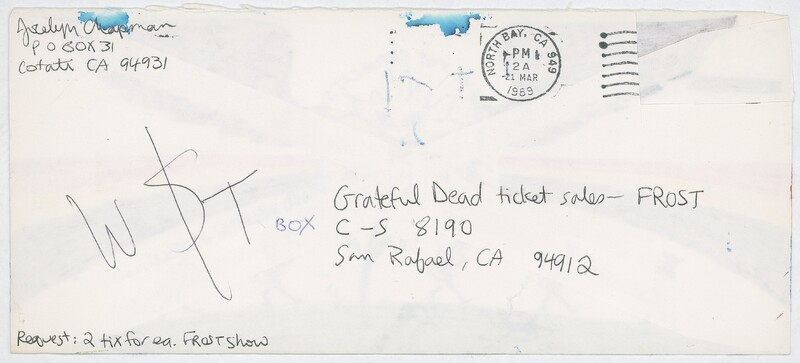 Joselyn Chapman
P O BOX 31
Cotati CA 94931
NORTH BAY, CA 949
PM
2A
21 MAR
1989
Grateful Dead ticket sales — FROST
BOX C-S 8190
San Rafael, CA 94912
Request: 2 tix for ea. FROST show